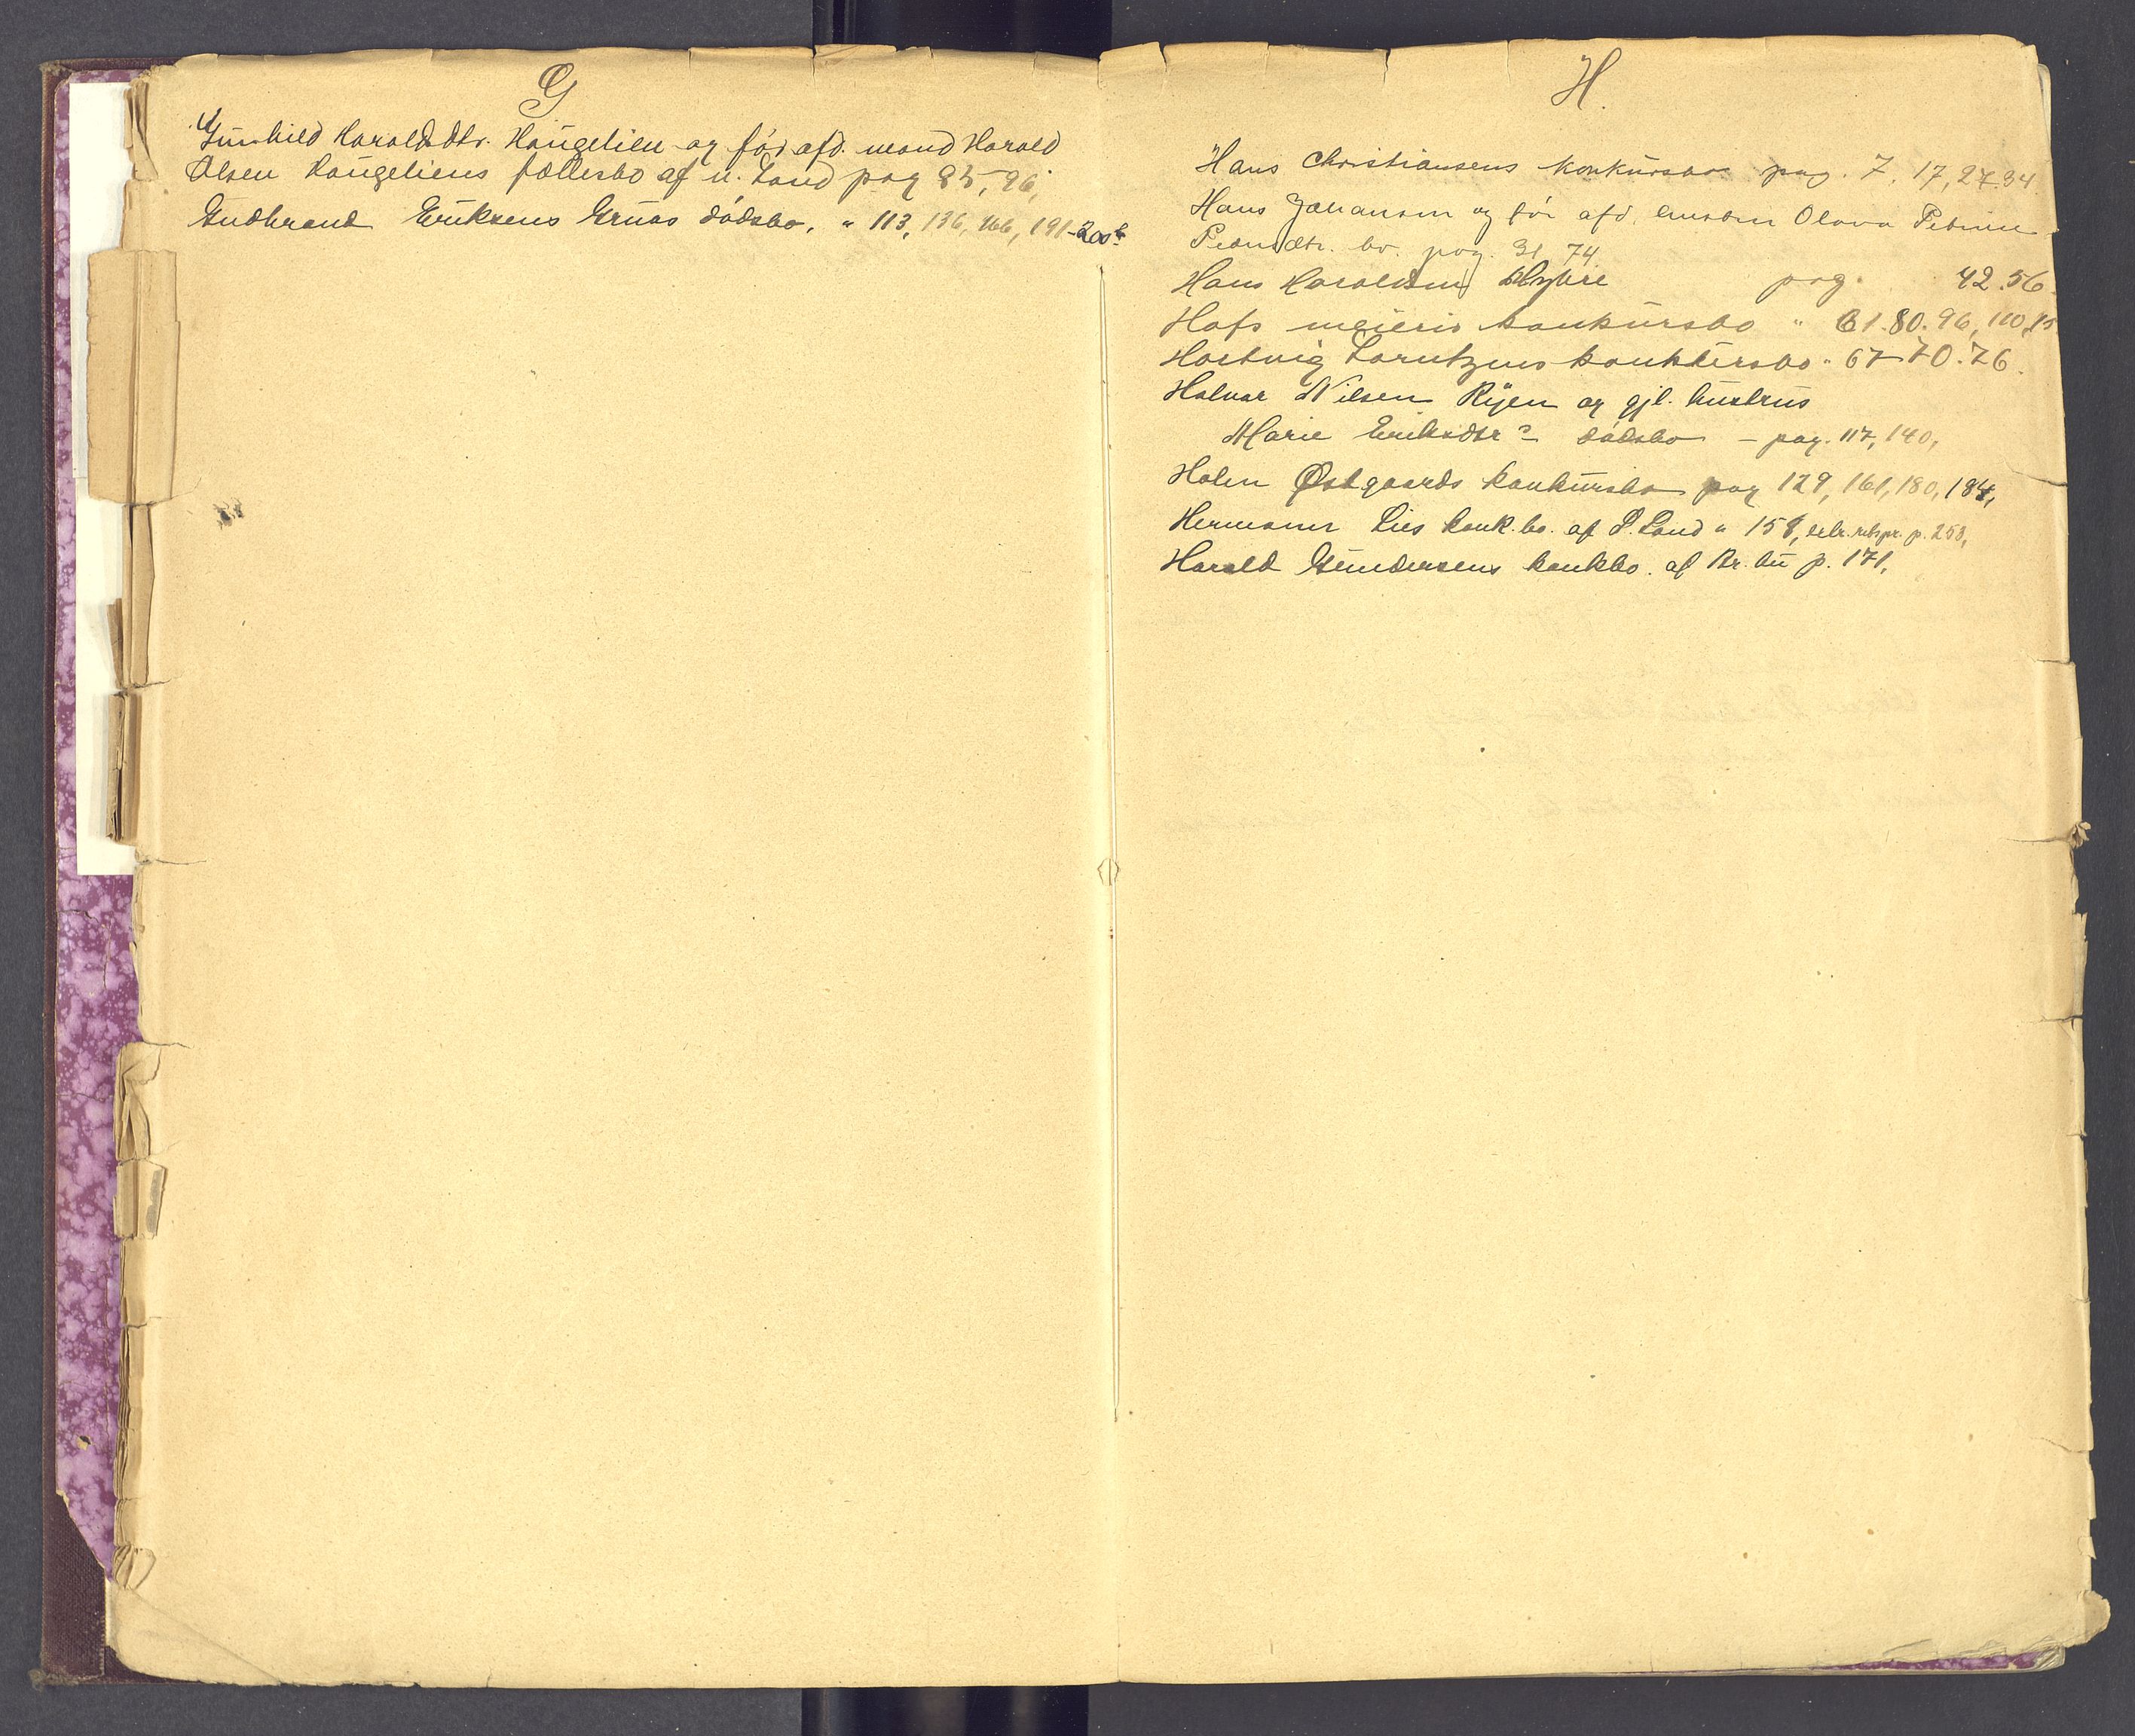 G
Gunhild Haraldsdtr. Haugelien og før afd. mand Harald
Olsen Haugeliens fællesbo af n. Land pag 85, 96,
Gudbrand Eriksens Gruas dødsbo, " 113, 136, 166, 191-200b
H.
Hans Christiansens konkursbo pag. 7, 17, 27.34.
Hans Johansen og før afd. hustru Olava Petrine
Pedersdtr. bo. pag. 31 74.
Hans Haraldsen pag. 42.56.
Hofs meieris konkursbo " 61.80.96, 110, 15
Hartvig Larntzens konkursbo " 67 70.76.
Halvor Nilsen Ryen og gjl. hustrus
Marie Eriksdtrs dødsbo – pag. 117, 140,
Halen Østgaards konkursbo pag 129, 161, 180, 184,
Hermann Lies konk.bo. af S. Land " 158, p. 253,
Harald Gundersens konkbo. af Br.bu p. 171,